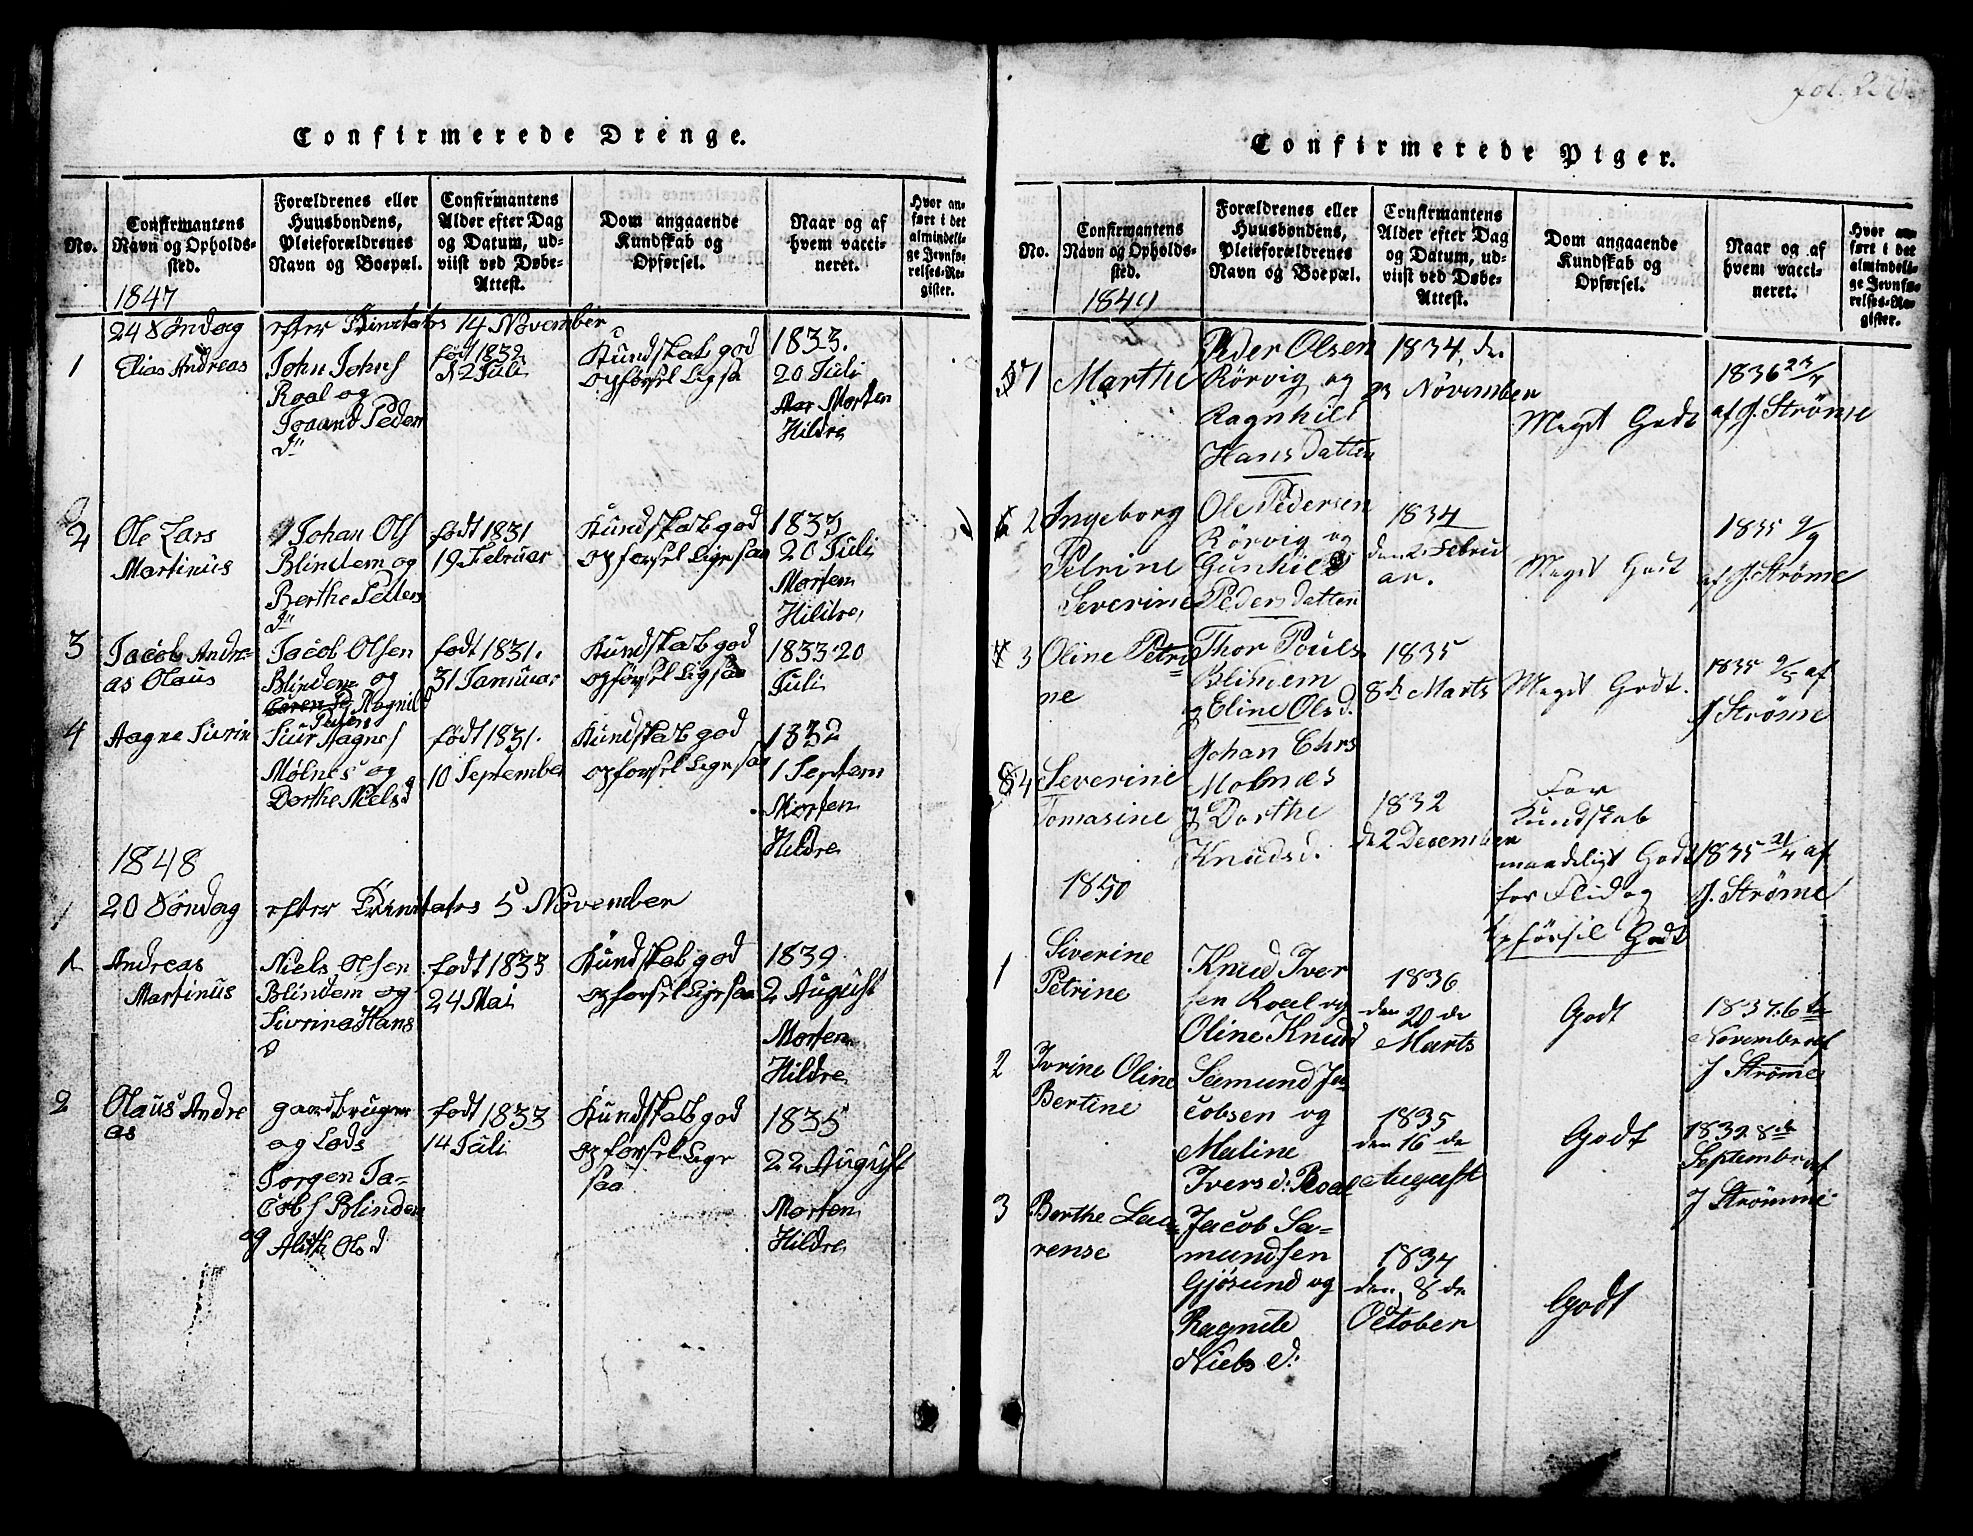 Confirmerede Drenge.
No.
Confirmantens
Navn og Opholds-
sted.
Forældrenes eller
Huusbondens,
Pleieforældrenes
Navn og Boepæl.
Confirmantens
Alder efter Dag
og Datum, ud-
viist ved Døbe-
Attest.
Dom angaaende
Kundskab og
Opførsel.
Naar og af
hvem vacci-
neret.
Hvor an-
ført i det
almindeli-
ge Jevnfø-
relses-Re-
gister.
1847
24 Söndag efter Trinitatis 14 November
1
Elias Andreas
John Johns
Roal og
Peder
d
født 1832
d 2 Juli
Kundskab god
opforsel Ligesa
1833.
20 Juli
Morten
Hildre
2
Ole Lars
Martinus
Johan Ols
Blindem og
Berthe Peders
d
født 1831
19 Februar
Kundskab god
opforsel Ligesaa
1833
20 Juli
Morten
Hildre
3
Jacob Andre-
as Olaus
Jacob Olsen
Blindem og
Ragnild
Peders
født 1831.
31 Januar
Kundskab god
opførsel Ligesaa
1833 20
Juli
4
Aagne Siurin
Siur Aagnes
Molnes og
Dorthe Nielsd
født 1831.
10 September
Kundskab god
opforsel Ligesaa
1832
1 Septem
Morten
Hildre
1848
20 Söndag efter Trinitatis 5 November
1
Andreas
Martinus
Niels Olsen
Blindem og
Sivrina Hans
d
født 1833
24 Mai
Kundskab god
opforsel Ligesaa
1839
2 August
Morten
Hildre
2
Olaus Andre
as
gaardbruger
og Lods
Jorgen Ja-
cobs Blindem
og Alith Ols d
født 1833
14 Juli
Kundskab god
opforsel Lige
saa
1835
22 August
Morten
Hildre
fol. 22
Confirmerede Piger.
No.
Confirmantens
Navn og Opholds-
sted.
Forældrenes eller
Huusbondens,
Pleieforældrenes
Navn og Boepæl.
Confirmantens
Alder efter Dag
og Datum, ud-
viist ved Døbe-
Attest.
Dom angaaende
Kundskab og
Opførsel.
Naar og af
hvem vacci-
neret.
Hvor an-
ført i det
almindeli-
ge Jevnfø-
relses-Re-
gister.
1849
1
Marthe
Peder Olsen
Rörvig og
Ragnhild
Hansdatter
1834, den
23 Növember
Meget Godt
1836 23/7
af J. Ströme
2
Ingeborg
Petrine
Severine
Ole Pedersen
Rörvig og
Gunhild
Pedersdatter
1834
den 2 Febru
ar.
Meget Godt
1835 9/9
af J. Ströme
3
Oline Petri
ne
Thor Pouls
Blinem
og Eline Olsd.
1835
8de Marts
Meget Godt.
1835 9/5 af
J Ströme
4
Severine
Tomasine
Johan Chrs
Molnæs
og Dorthe
Knudsd.
1832
d 2 December
For
Kundskab
maadeligt Godt
for Flid og
Opförsil Godt
1835 21/4 af
J. Ströme
1850
1
Siverine
Petrine
Knud Iver
sen Roal og
Oline Knudd
1836
den 20 de
Marts
Godt
1837. 6 te
November af
J Ströme
2
Ivrine Oline
Bertine
Semund Ja
cobsen og
Maline
Iversd: Roal
1835
den 16 de
August
Godt
1839. 8 de
September af
J Strömme
3
Berthe Lau
rense
Jacob Sa-
mundsen
Gjösund og
Ragnile
Niels d:
1834
den 8 de
October
Godt